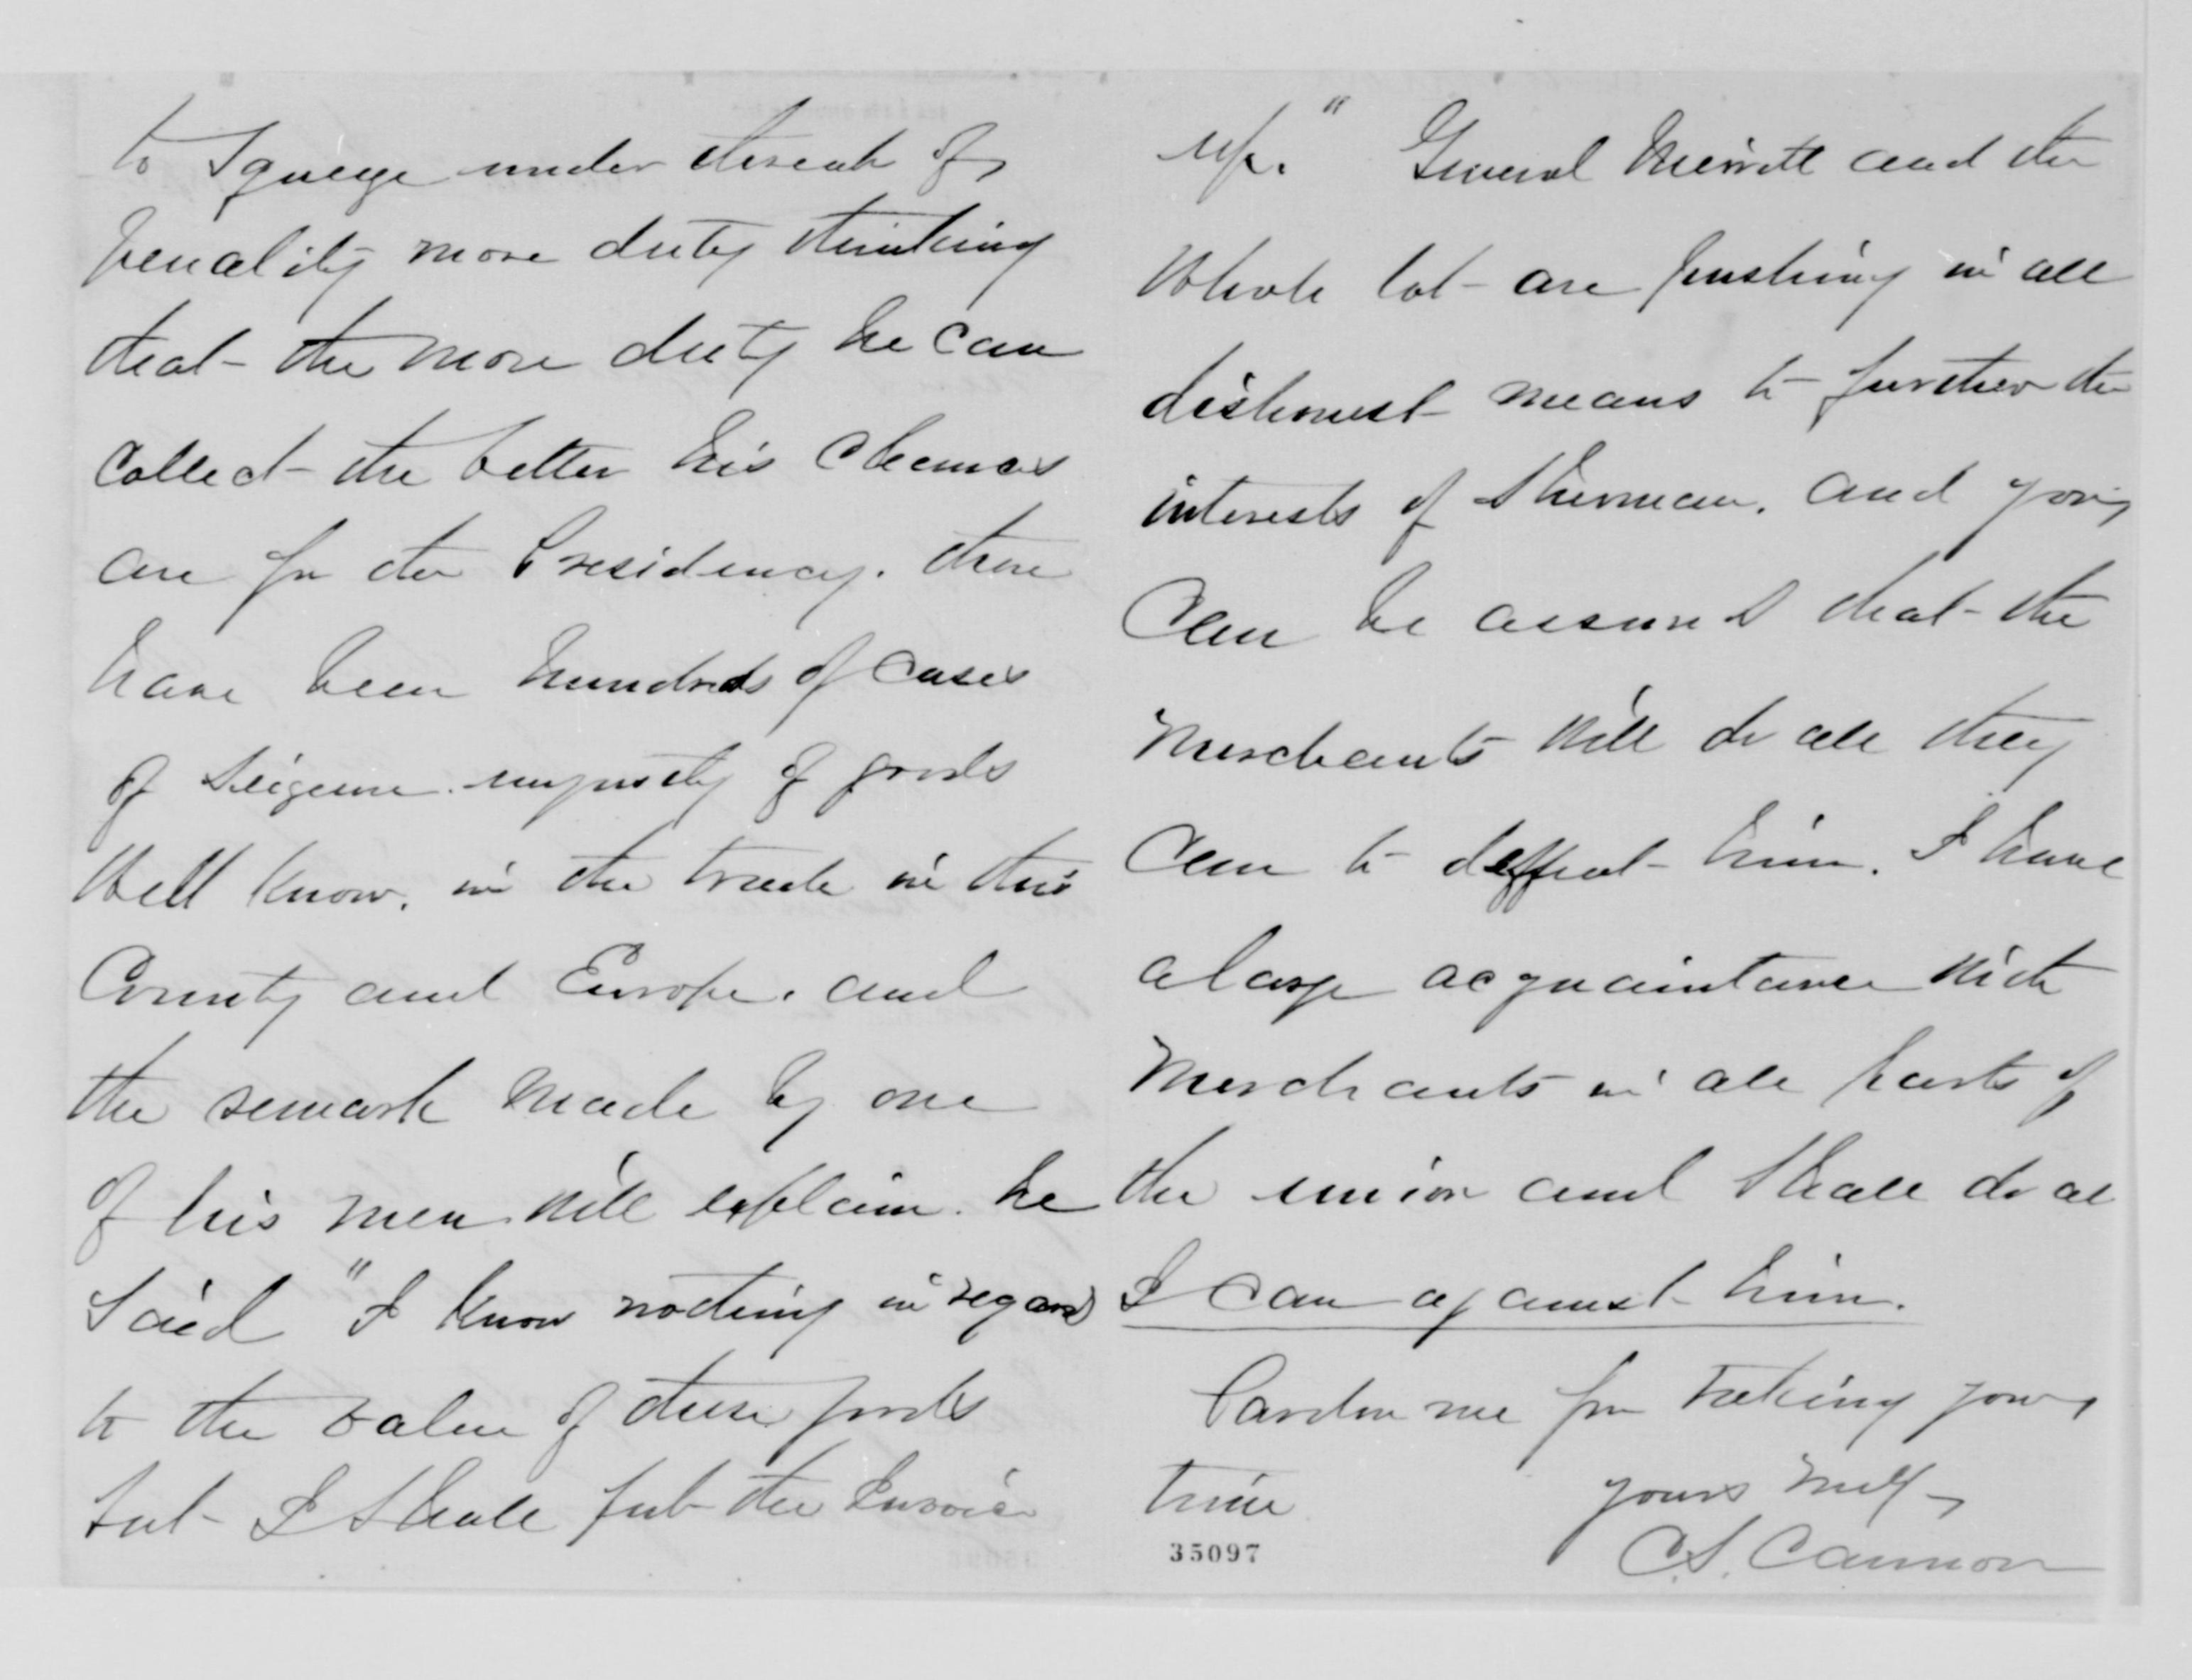 to Squeege under threat of
penality more duty thinking
that the more duty he can
Collect the better his Chances
are for the Presidency. there
have been hundreds of Cases
of Seigeure. unjustly of goods
Well Know. in the trade in this
County and Europe. and
the remark Made by one
of his men will explain. he
Said "I Know nothing in regard
to the value of these goods
but I Shall put the Invoice
up." General Merritt and the
Whole lot are pushing in all
dishonest means to further the
interests of Sherman. and you
Can be assured that the
Merchants Will do all they
Can to deffeat him. I have
a large acquaintance With
Merchants in all parts of
the union and Shall do al
I Can against him.
Pardon me for Taking your
time
yours
C.S. Cannon
35097